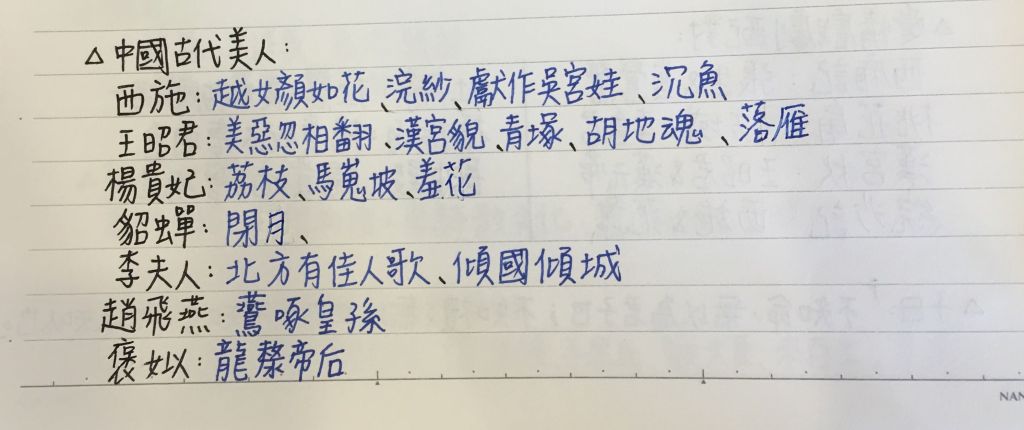 △中國古代美人：
西施：越女顏如花、浣紗、獻作吳宮娃、沉魚
王昭君：美惡忽相翻、漢宮貌、青塚、胡地魂、落雁
楊貴妃：荔枝、馬嵬坡、羞花
貂蟬：閉月、
李夫人：北方有佳人歌、傾國傾城
趙飛燕：鷰啄皇孫
褒姒：龍漦帝后
NAN